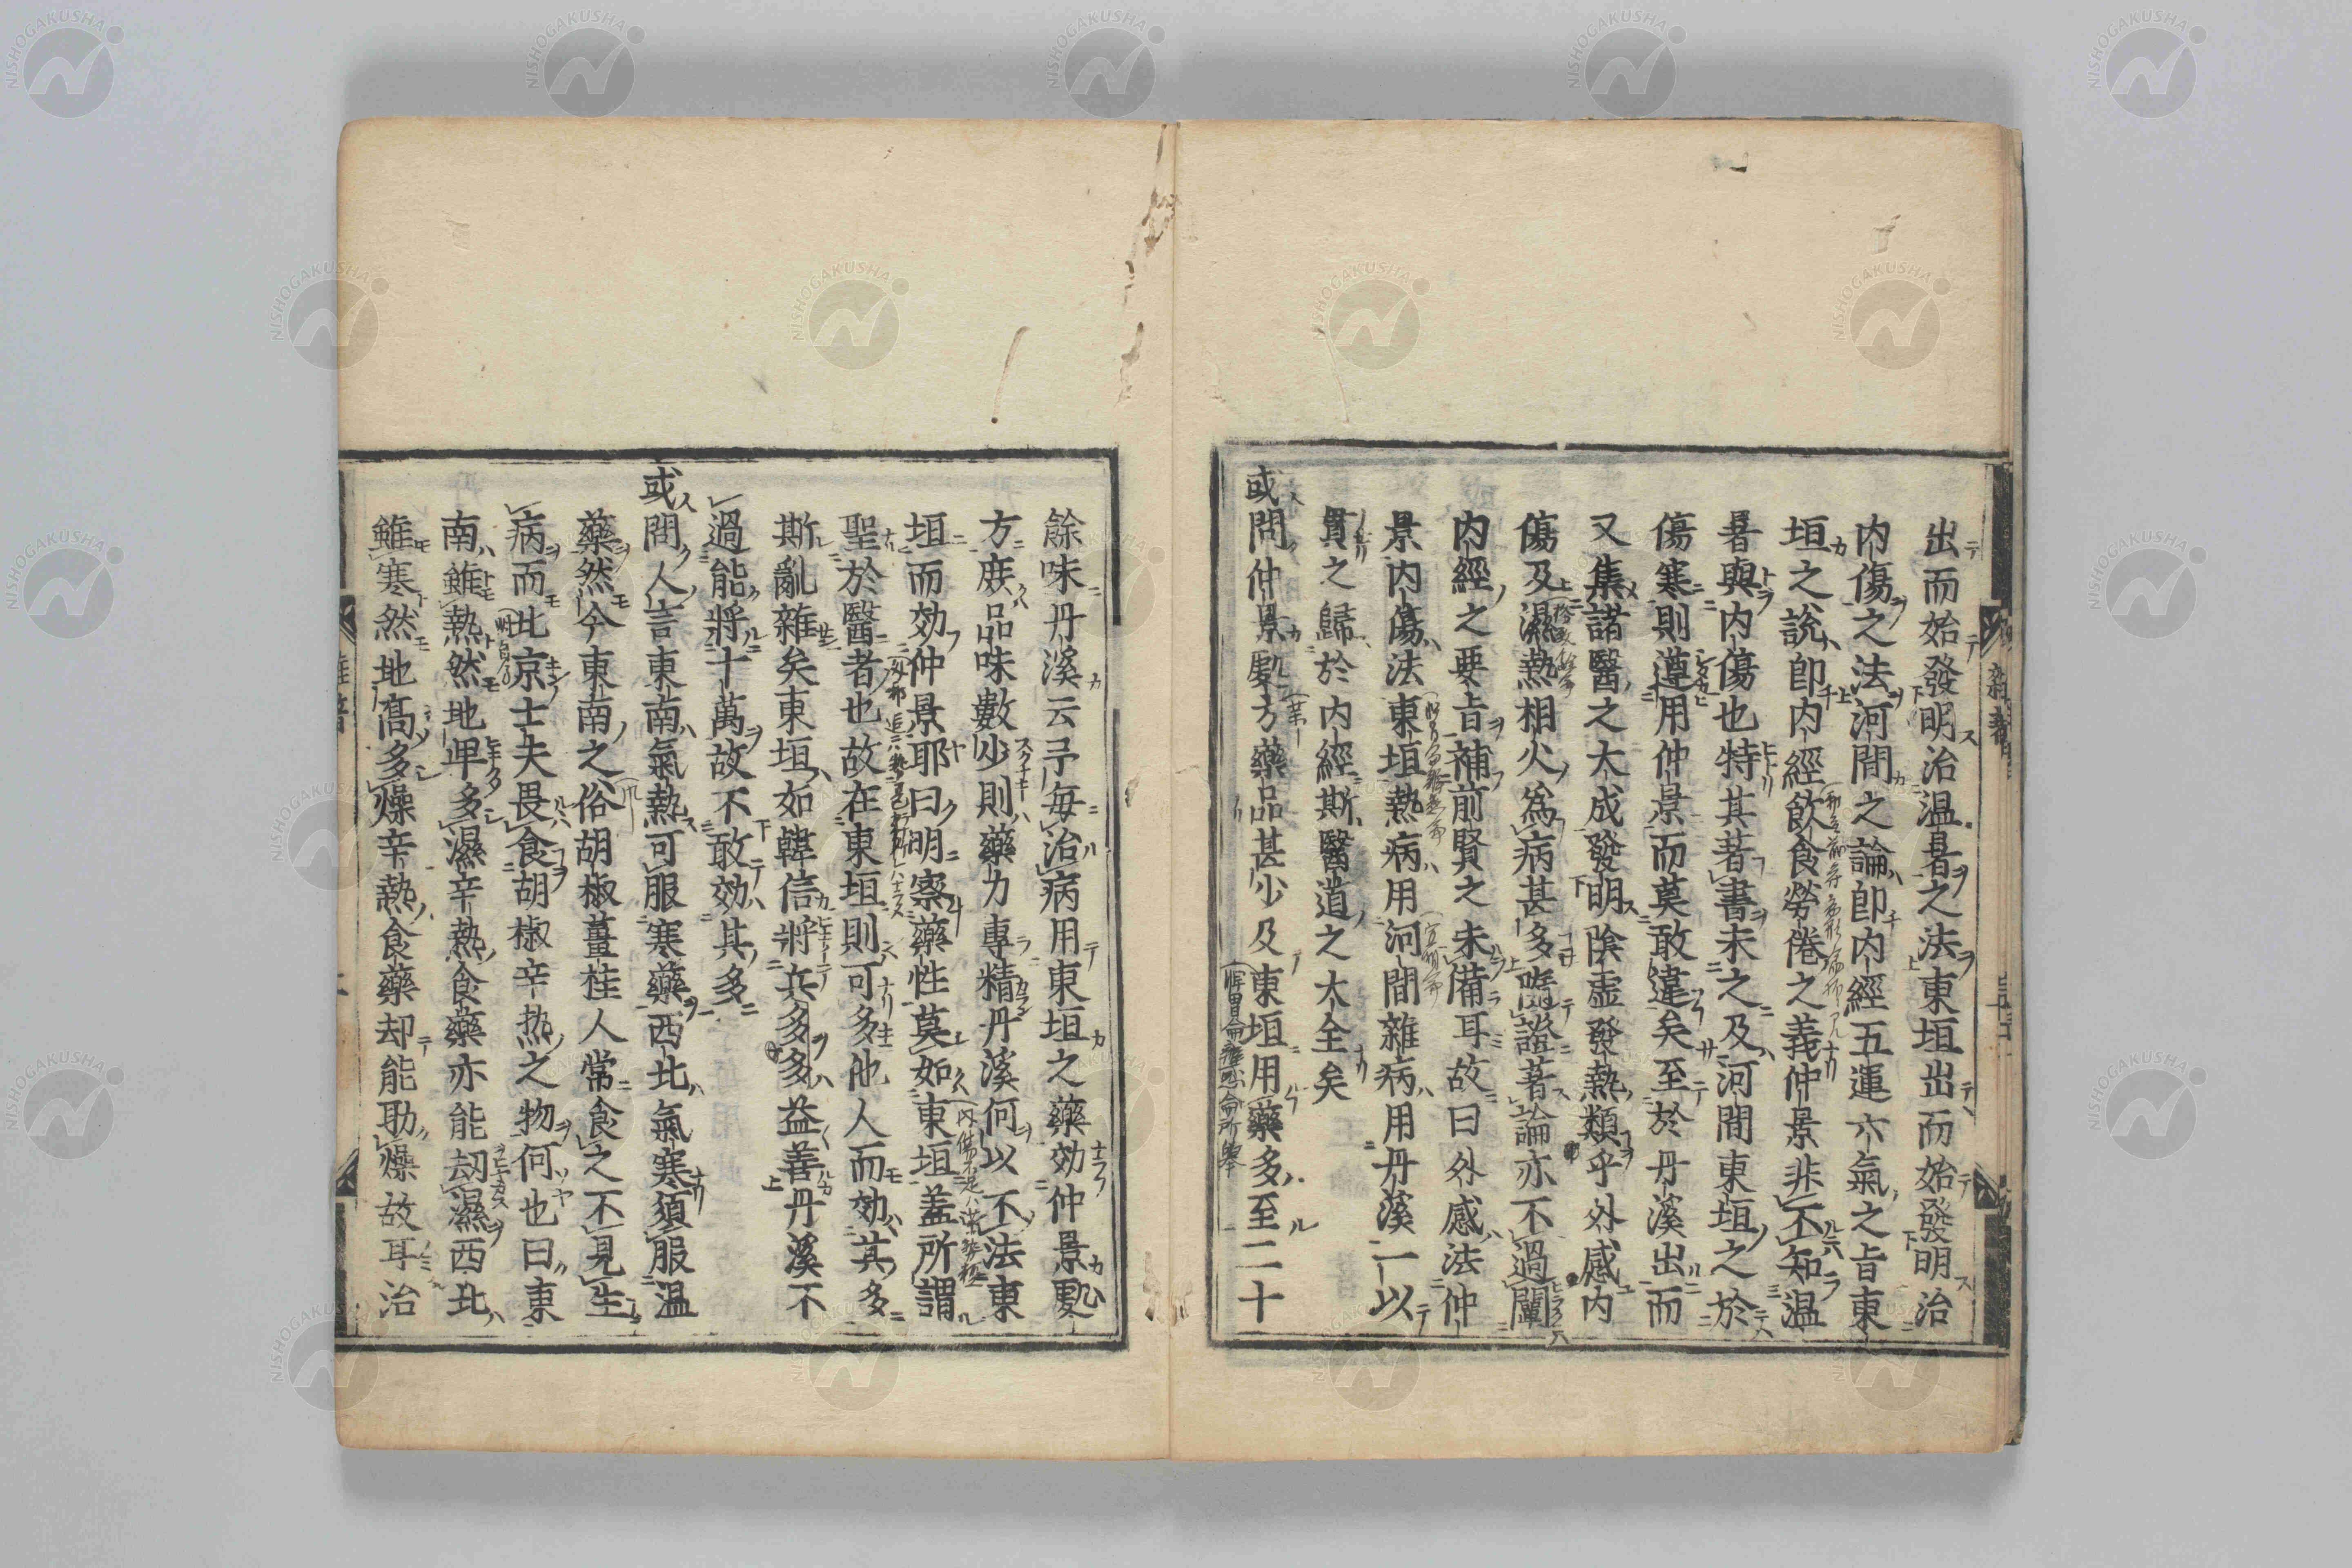 出而始發明治温暑之法東垣出而始發明治
内傷之法河間之論即内經五運六氣之旨東
垣之說即内經飲食勞倦之義仲景非不知温
暑與内傷也特其著書未之及河間東垣之於
傷寒則遵用仲景而莫敢違矣至於丹溪出而
又集諸醫之大成發明陰虛發熱類乎外感内
傷及濕熱相火為病甚多隨證著論亦不過闡
内經之要旨補前賢之未備耳故曰外感法仲
景内傷法東垣熱病用河間雜病用丹溪一以
貫之歸於内經斯醫道之大全矣
或問仲景處方藥品甚少及東垣用藥多至二十
餘味丹溪云予每治病用東垣之藥效仲景處
方庻品味數少則藥力專精丹溪何以不法東
垣而効仲景耶曰明察藥性莫如東垣蓋所謂
聖於醫者也故在東垣則可多他人而効其多
斯亂雜矣東垣如韓信將兵多多益善丹溪不
過能將十萬故不敢効其多
或問人言東南氣熱可服寒藥西北氣寒須服温
藥然今東南之俗胡椒薑桂人常食之不見生
病而北京士夫畏食胡椒辛热之物何也曰東
南雖熱然地卑多濕辛熱食藥亦能刧濕西北
雖寒然地高多燥辛熱食藥却能助燥故耳治
NISHOGAKUSHA